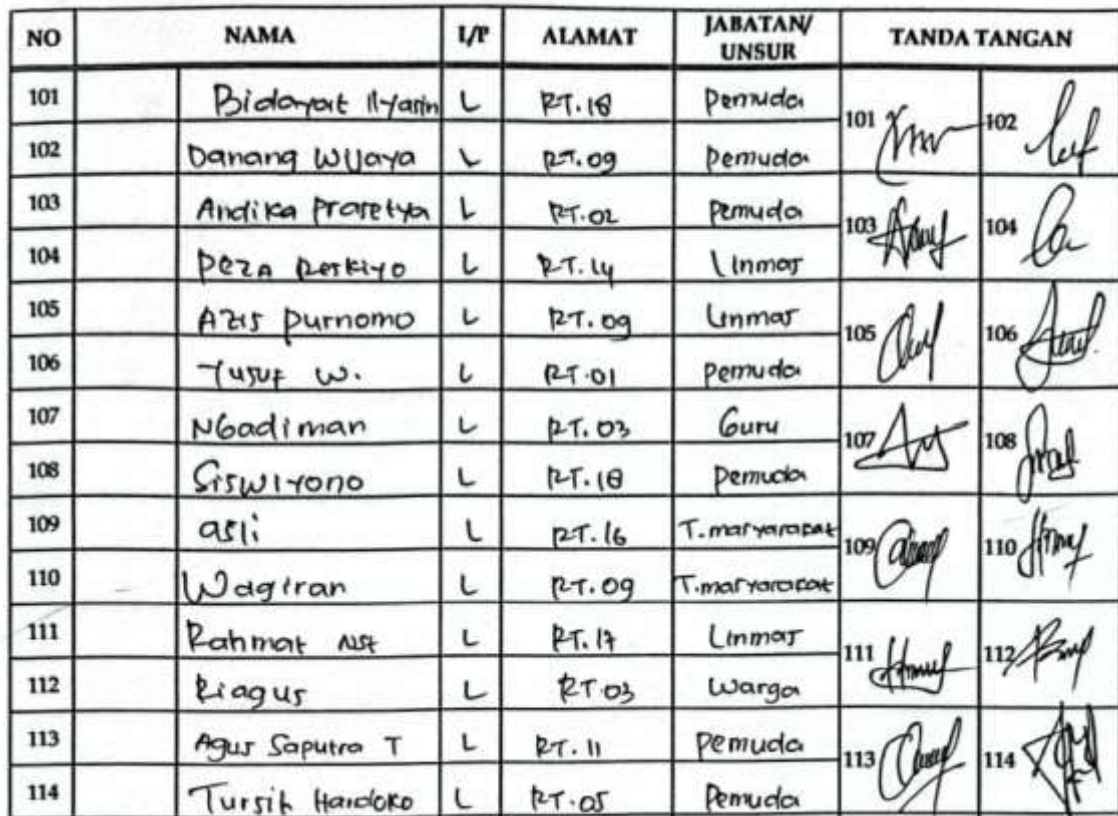 NO NAMA L/P ALAMAT JABATAN/ UNSUR TANDA TANGAN
101 Bidayat Ilyasin L RT.18 Pemuda 101 102
102 Danang Wijaya L RT.09 Pemuda
103 Andika Prasetya L RT.02 Pemuda 103 104
104 Reza Reskiyo L RT.14 Linmas
105 Azis Purnomo L RT.09 Linmas 105 106
106 Yusuf W. L RT.01 Pemuda
107 Ngadiman L RT.03 Guru 107 108
108 Siswiyono L RT.18 Pemuda
109 asli L RT.16 T.masyarakat 109 110
110 Wagiran L RT.09 T.masyarakat
111 Rahmat Nst L RT.17 Linmas 111 112
112 Riagus L RT.03 Warga
113 Agus Saputra T L RT.11 Pemuda 113 114
114 Tursih Handoko L RT.05 Pemuda